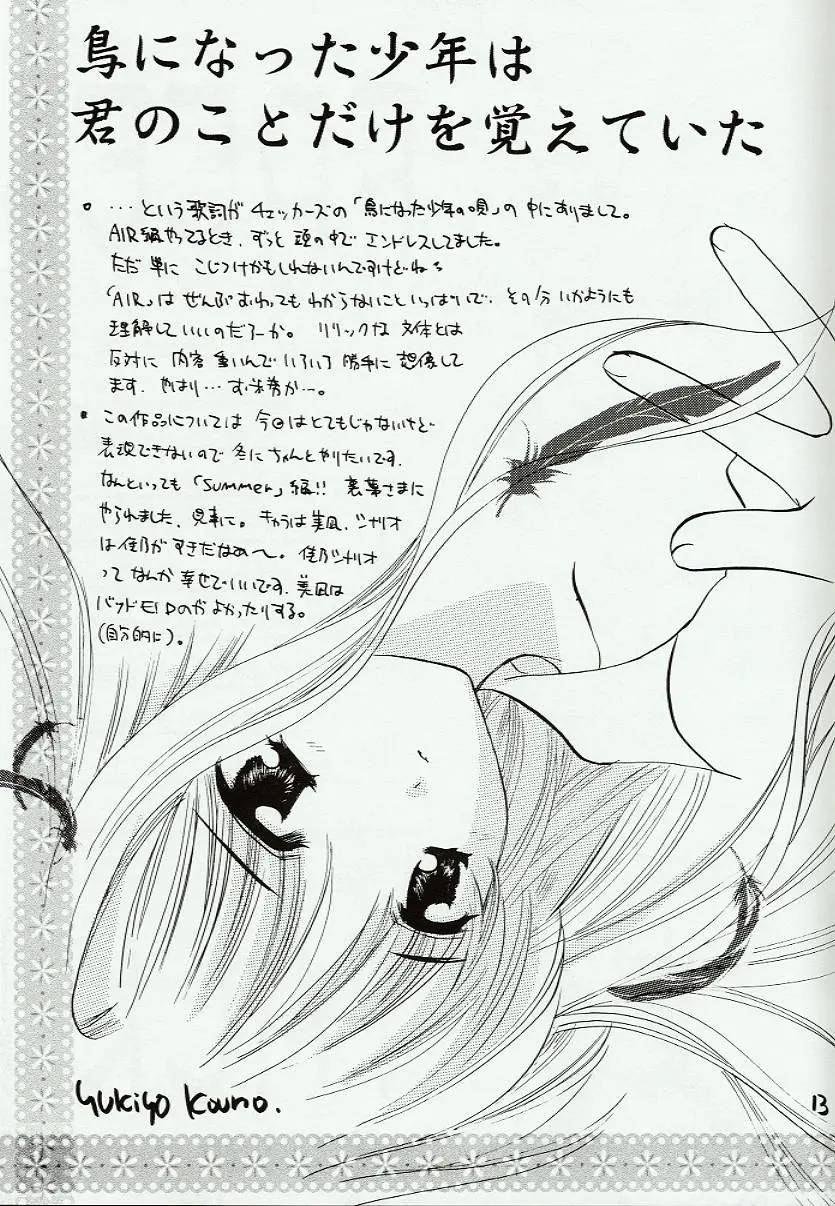 鳥になった少年は
君のことだけを覚えていた
…という歌詞が チェッカーズの「鳥になった少年の唄」の中にありまして。
AIR編やってるとき、ずっと頭の中で エンドレスしてました。
ただ単に こじつけかもしれないんですけどね
「AIR」は ぜんぶおわっても わからないこといっぱいで、その分いかようにも
理解していいのだろーか。リリックな 文体とは
反対に 内容 重いんで いろいろ 勝手に 想像して
ます、やはり…
この作品については 今回はとてもじゃないけど
表現できないので 冬に ちゃんとやりたいです、
なんといっても「Summer」編!! 裏葉さまに
やられました、見事に。キャラは美凪、シナリオ
は佳乃がすきだなあ〜。佳乃シナリオ
って なんか 幸せでいいです、美凪は
バッドENDのがよかったりする。
(自分的に)。
Yukiyo Kouno.
13